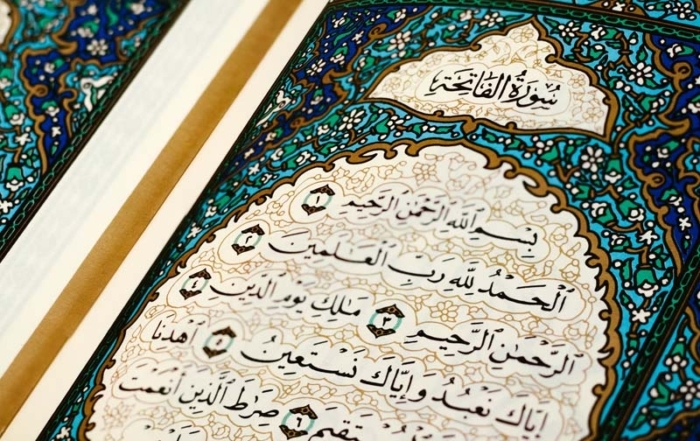 سُورَةُ الفَاتِحَةِ
بِسْمِ ٱللَّهِ ٱلرَّحْمَٰنِ ٱلرَّحِيمِ ١
ٱلْحَمْدُ لِلَّهِ رَبِّ ٱلْعَٰلَمِينَ ٢
ٱلرَّحْمَٰنِ ٱلرَّحِيمِ ٣ مَٰلِكِ يَوْمِ ٱلدِّينِ ٤
إِيَّاكَ نَعْبُدُ وَإِيَّاكَ نَسْتَعِينُ ٥ ٱهْدِنَا
ٱلْمُسْتَقِيمَ ٦ صِرَٰطَ ٱلَّذِينَ أَنْعَمْتَ